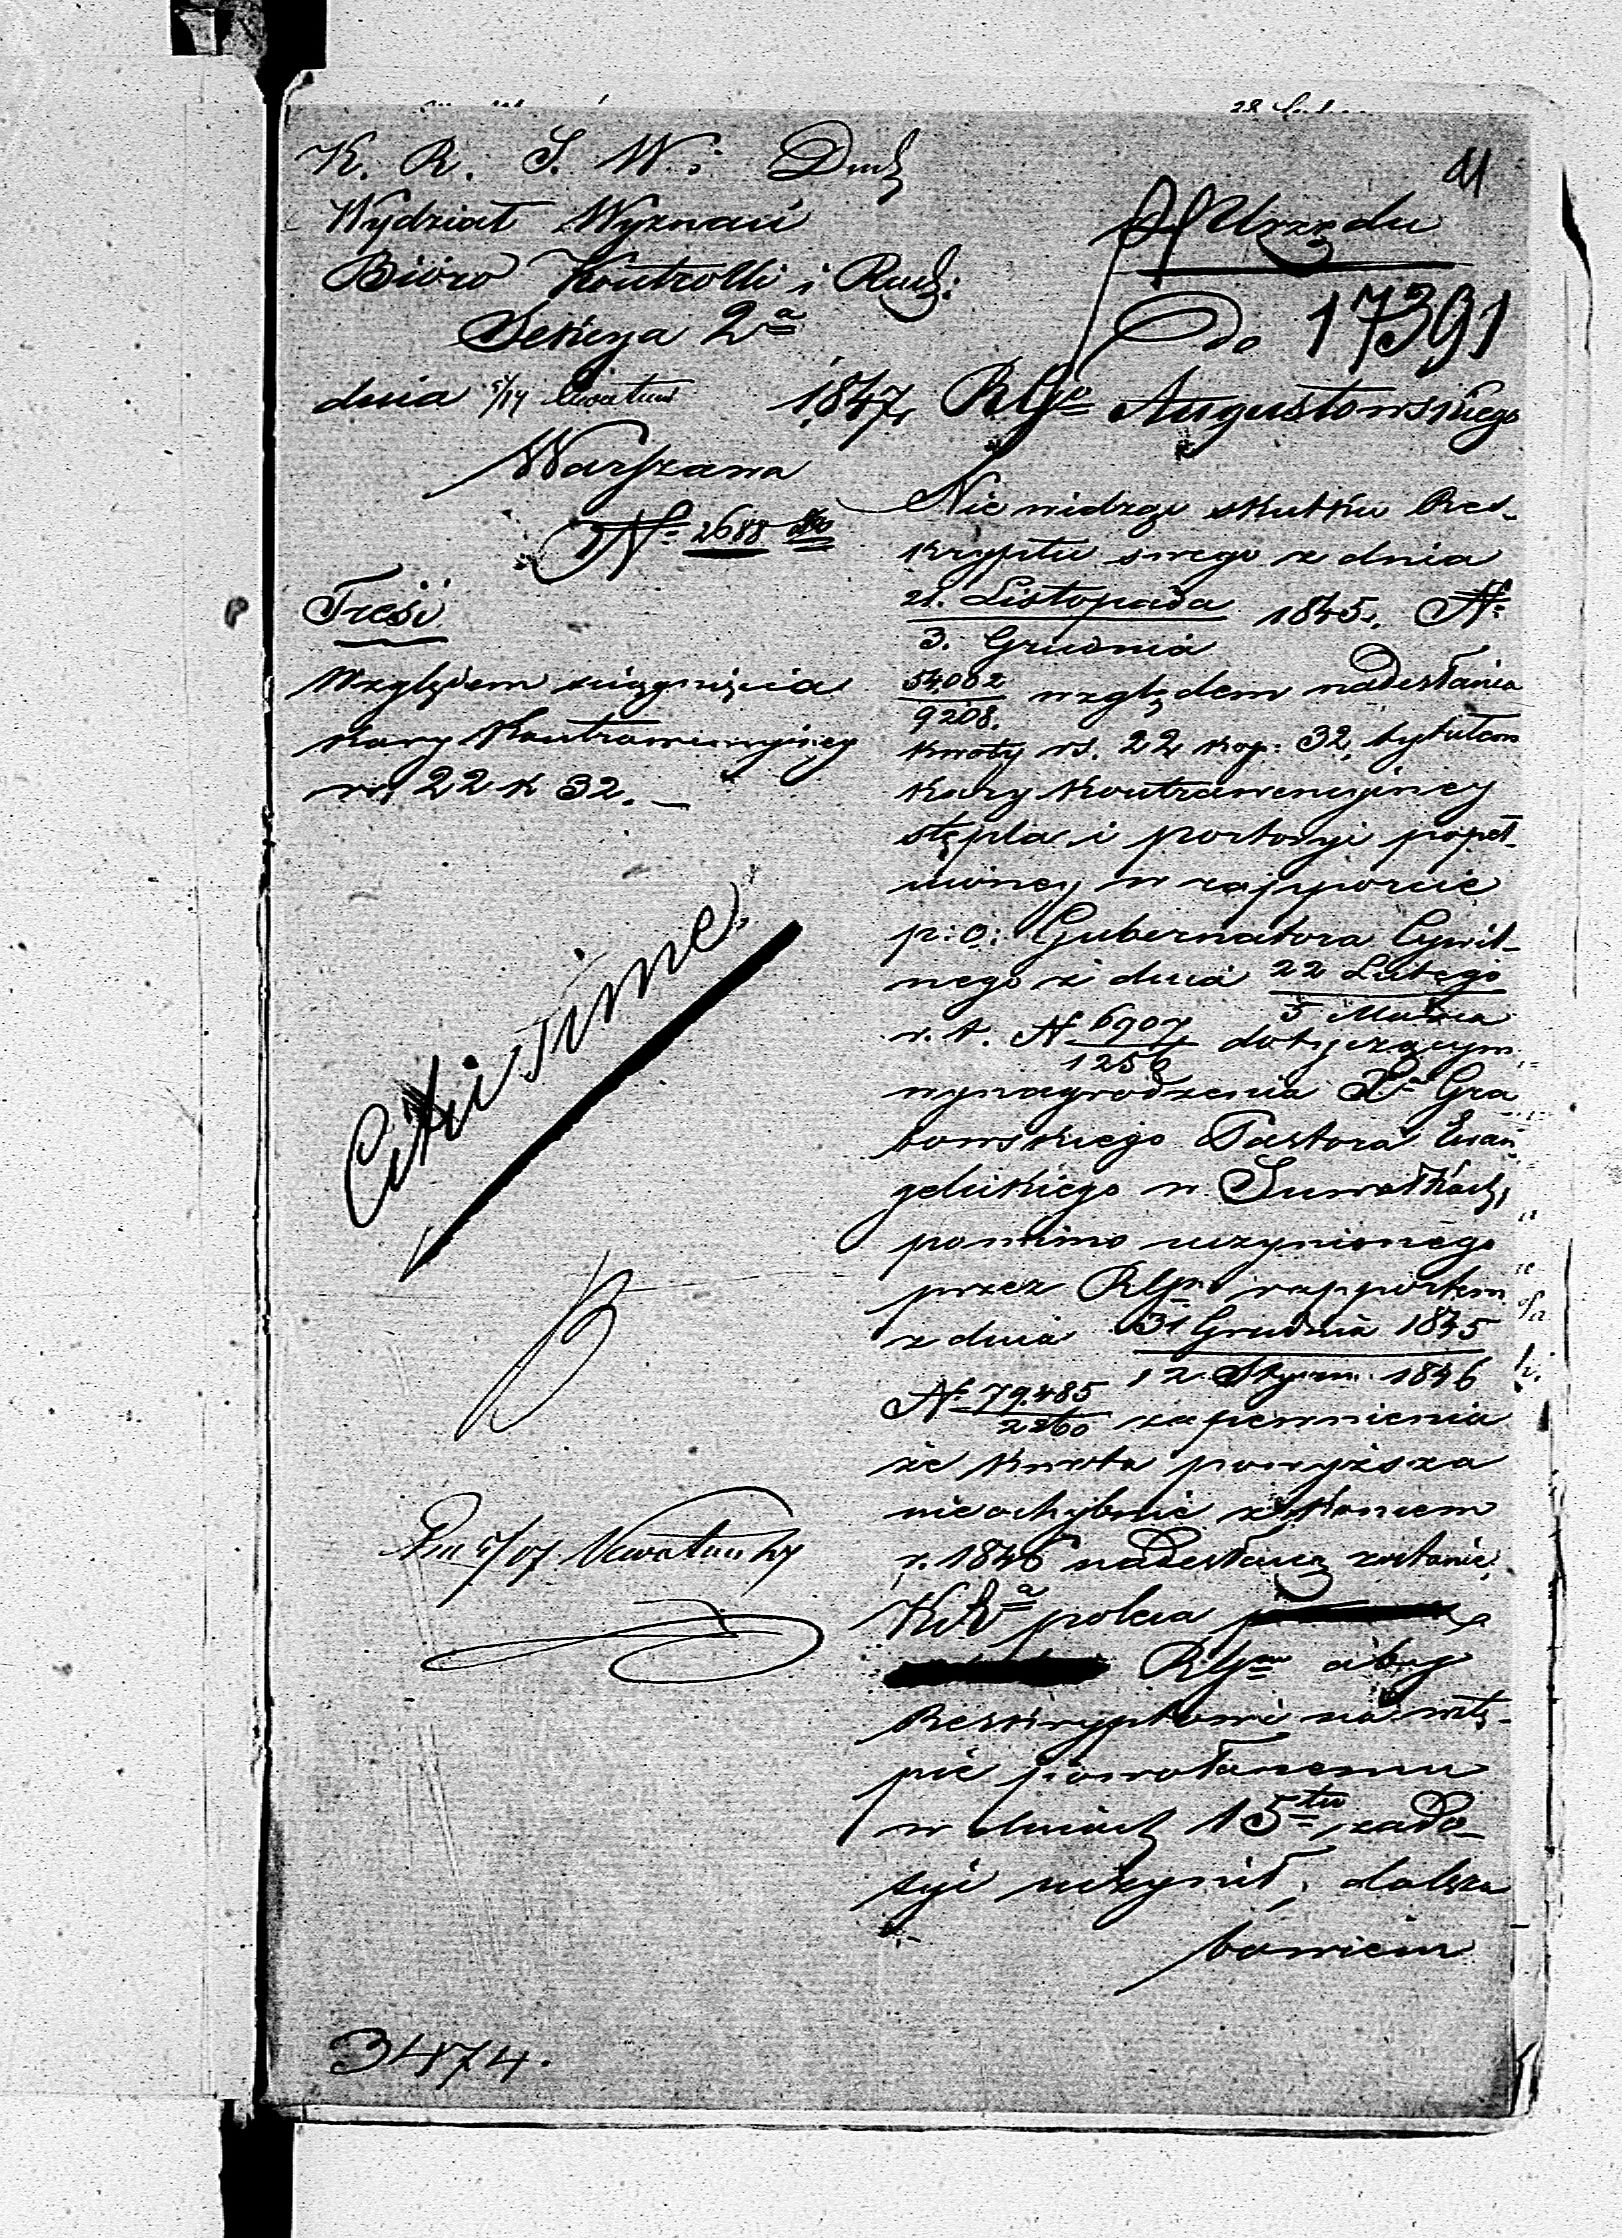 K. R. S. W. i Duch
Wydział Wyznań
Bióro Kontrolli i Rach:
Sekcya 2ª
dnia 5/17 Kwietnia 1847.
Warszawa
Nº 2688
Treść
Względem ściągnięcia
kary Kontrawencyjney
rs. 22 k 32.
Citissime.
3474.
11
Z Urzędu
Do 17391
RGu Augustowskiego
Nie widząc skutku Res-
kryptu swego z dnia
21. Listopada / 3. Grudnia 1845. Nº
54002 / 9208. względem nadesłania
kwoty rs. 22 kop: 32, tytułem
kary Kontrawencyjney
stępla i portoryi popeł-
nioney w rapporcie
p: o: Gubernatora Cywil-
nego z dnia 22 Lutego / 5 Marca
r. t. N 6907 / 1256 dotyczącym
wynagrodzenia Xª Gra
bowskiego Pastora Ewan
gelickiego w Suwałkach,
pomimo uczynionego
przez RGu rapportem
z dnia 31 Grudnia 1845 / 12 Styczn. 1846
Nº 79.485 / 2260 zapewnienia
że kwota powyższa
nieochybnie z końcem
r. 1846 nadesłaną zostanie,
KRª poleca
RGu aby
Reskryptowi na wstę-
pie powołanemu
w dniach 15tu zado-
syć uczynił, dalsza
bowiem